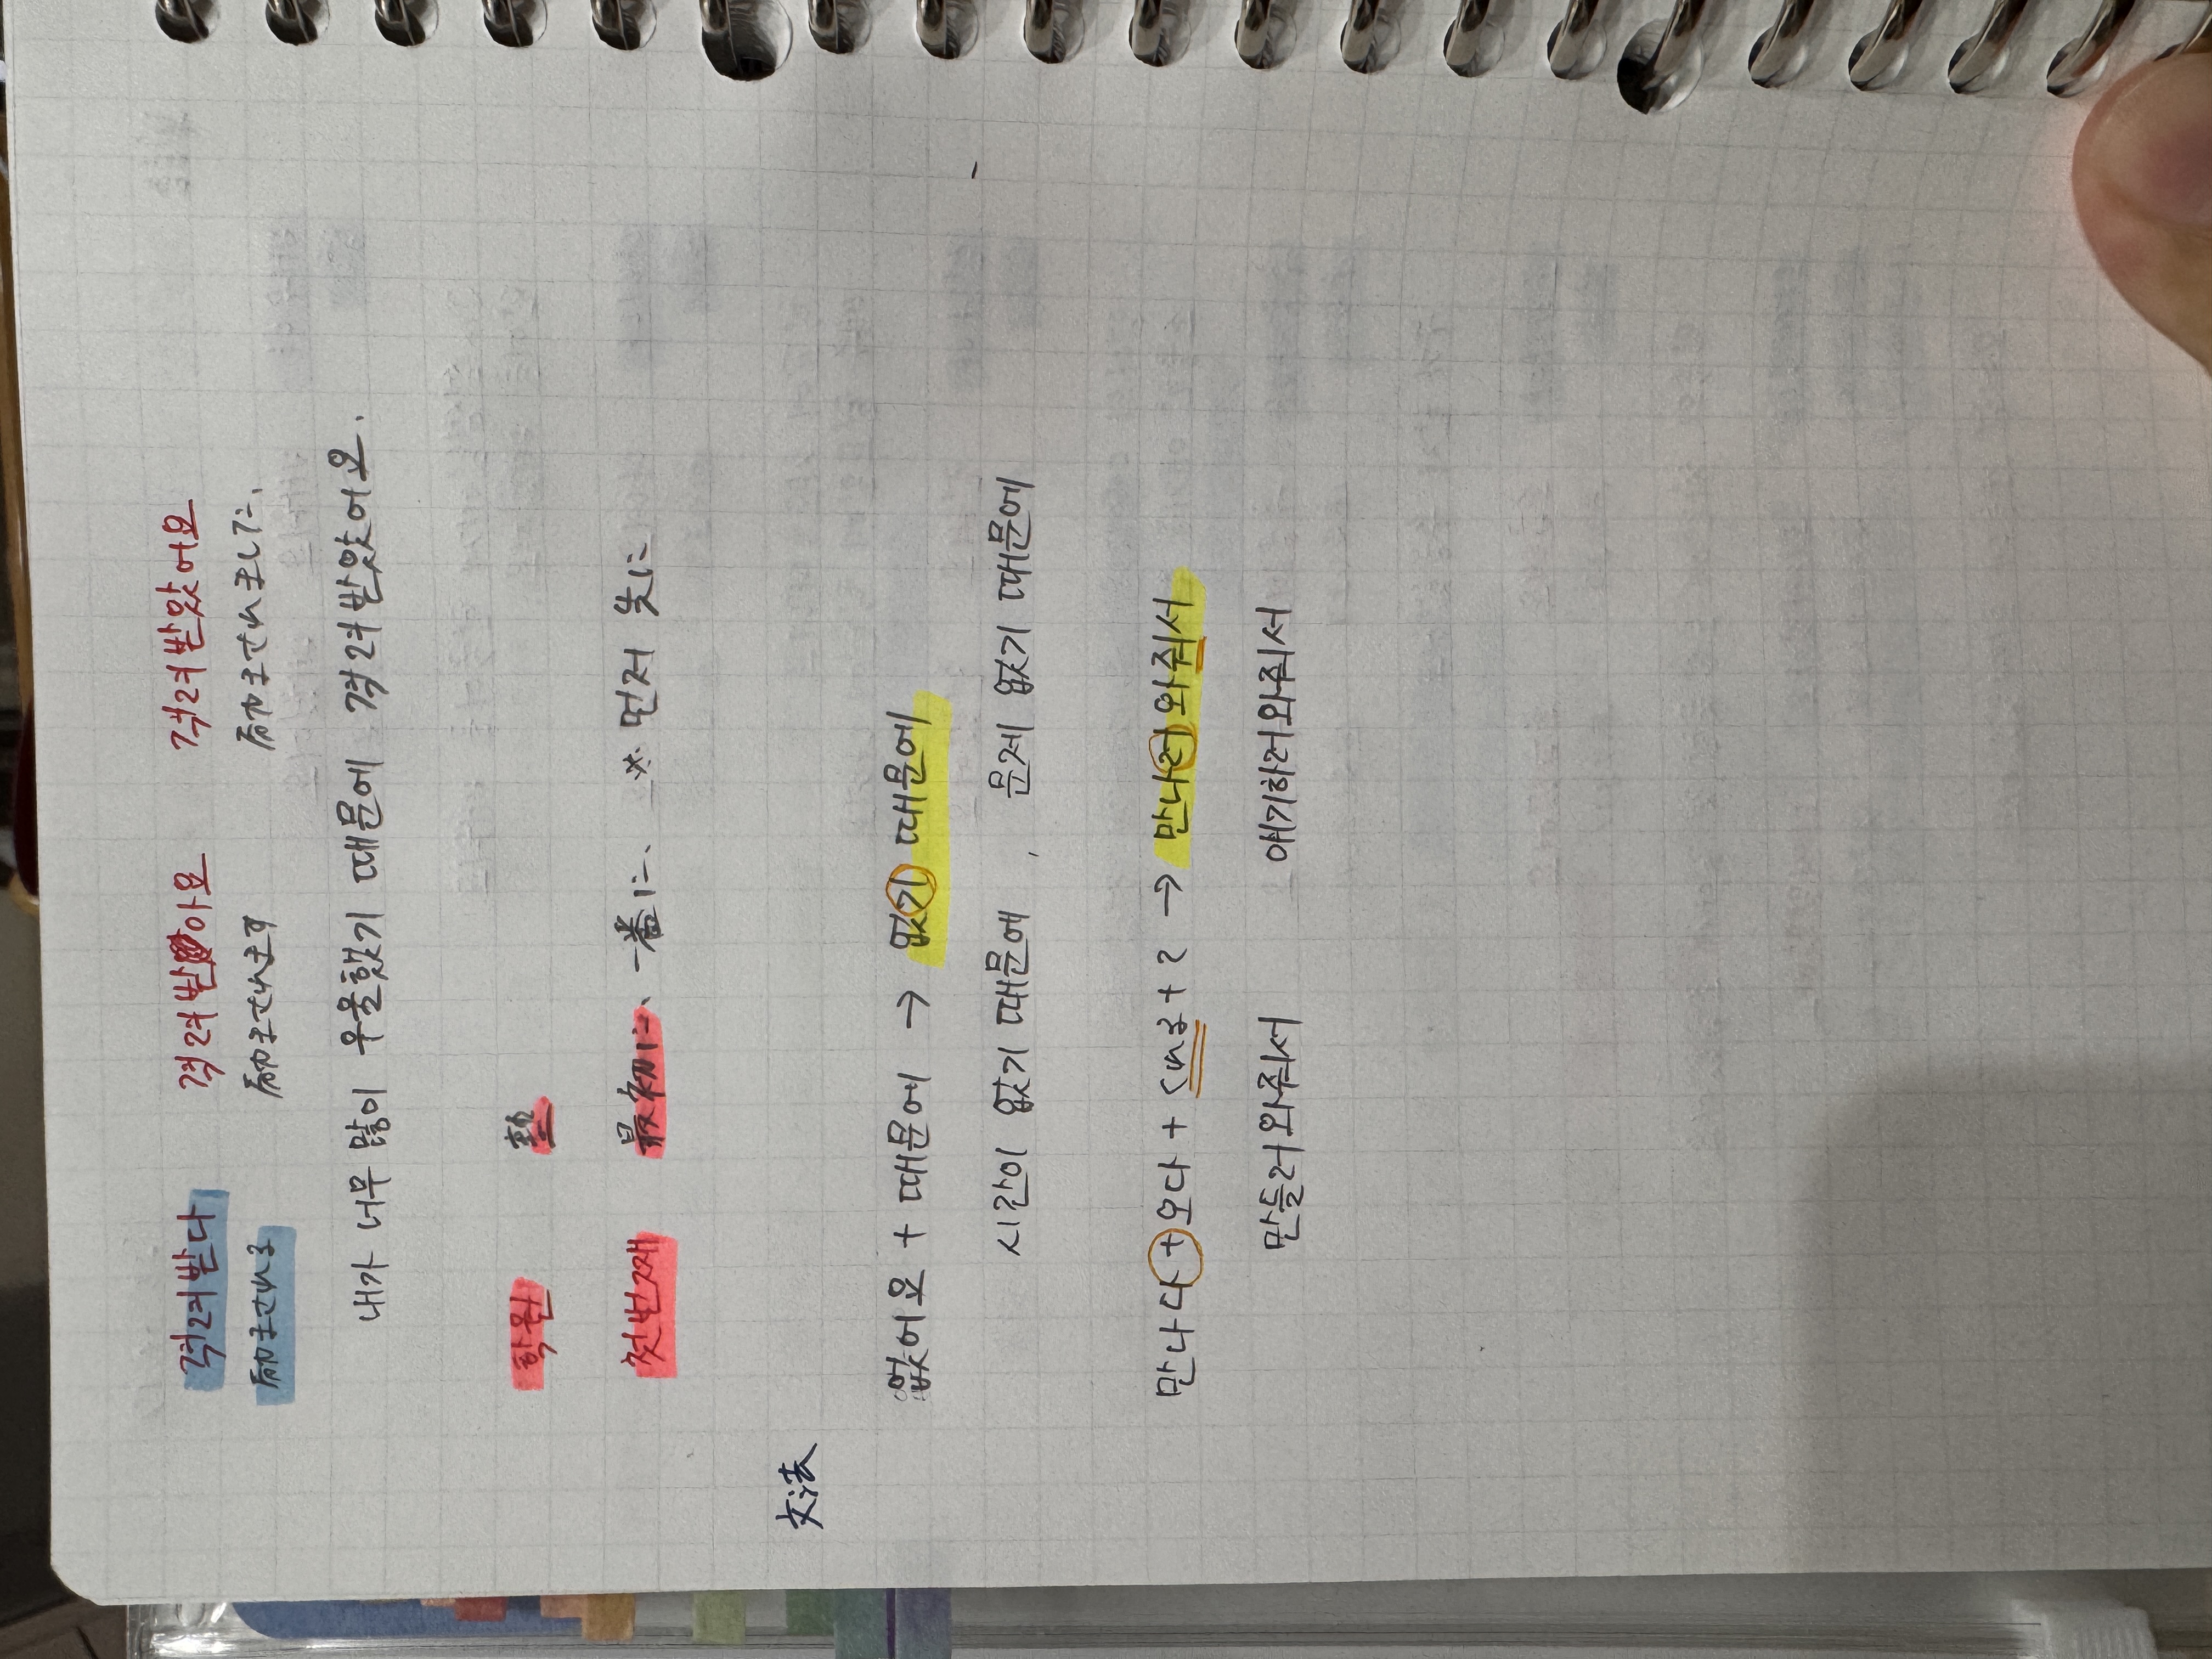 격려받다 격려받아요 격려받았어요
励まされる 励まされます 励まされました、
내가 너무 많이 우울했기 때문에 격려받았어요.
학원 塾
첫번째 最初に、一番に、 ※ 먼저 先に
文法
없어요 + 때문에 → 없기 때문에
시간이 없기 때문에 , 문제 없기 때문에
만나다 + 오다 + くれる + て → 만나러와줘서
만들러와줘서 얘기하러와줘서